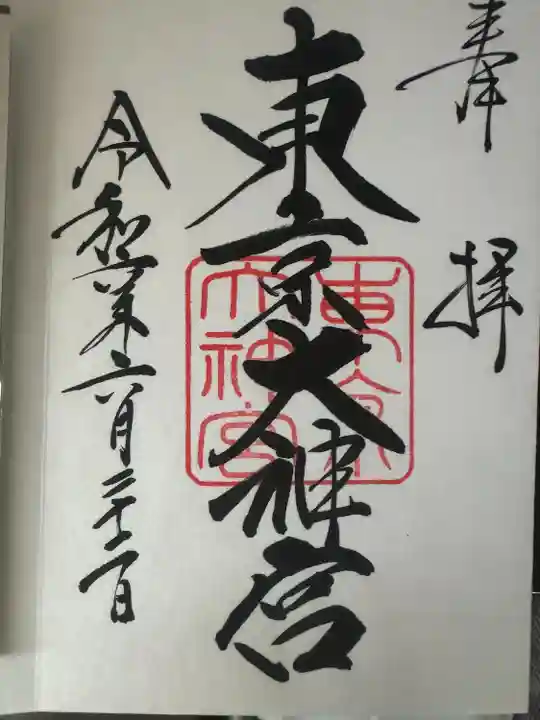 奉拝
東京大神宮
東京
大神宮
令和二年六月二十二日